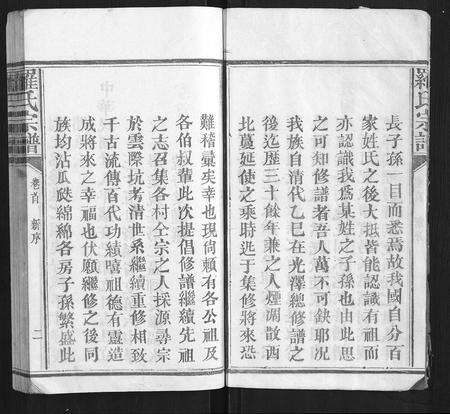 羅氏宗譜
長子孫一目而悉焉故我國自分百
家姓氏之後大抵皆能認識有祖而
亦認識我為某姓之子孫也由此思
之可知修譜者吾人萬不可缺耶況
我族自清代乙巳在光澤總修譜之
後迄歷三十餘年兼之人煙湖散酉
比蔓延使之乘時迯于集修將來恐
難稽彙矣幸也現尚賴有各公祖及
各伯叔輩此次提倡修譜繼續先祖
之志召集各村仝宗之人採源尋宗
於雲際坑考清世系繼續重修相致
千古流傳百代功績嘻祖德有靈造
成將來之幸福也伏願繼修之後同
族均沾瓜瓞綿綿各房子孫繁盛此
羅氏宗譜
卷首
新序
二